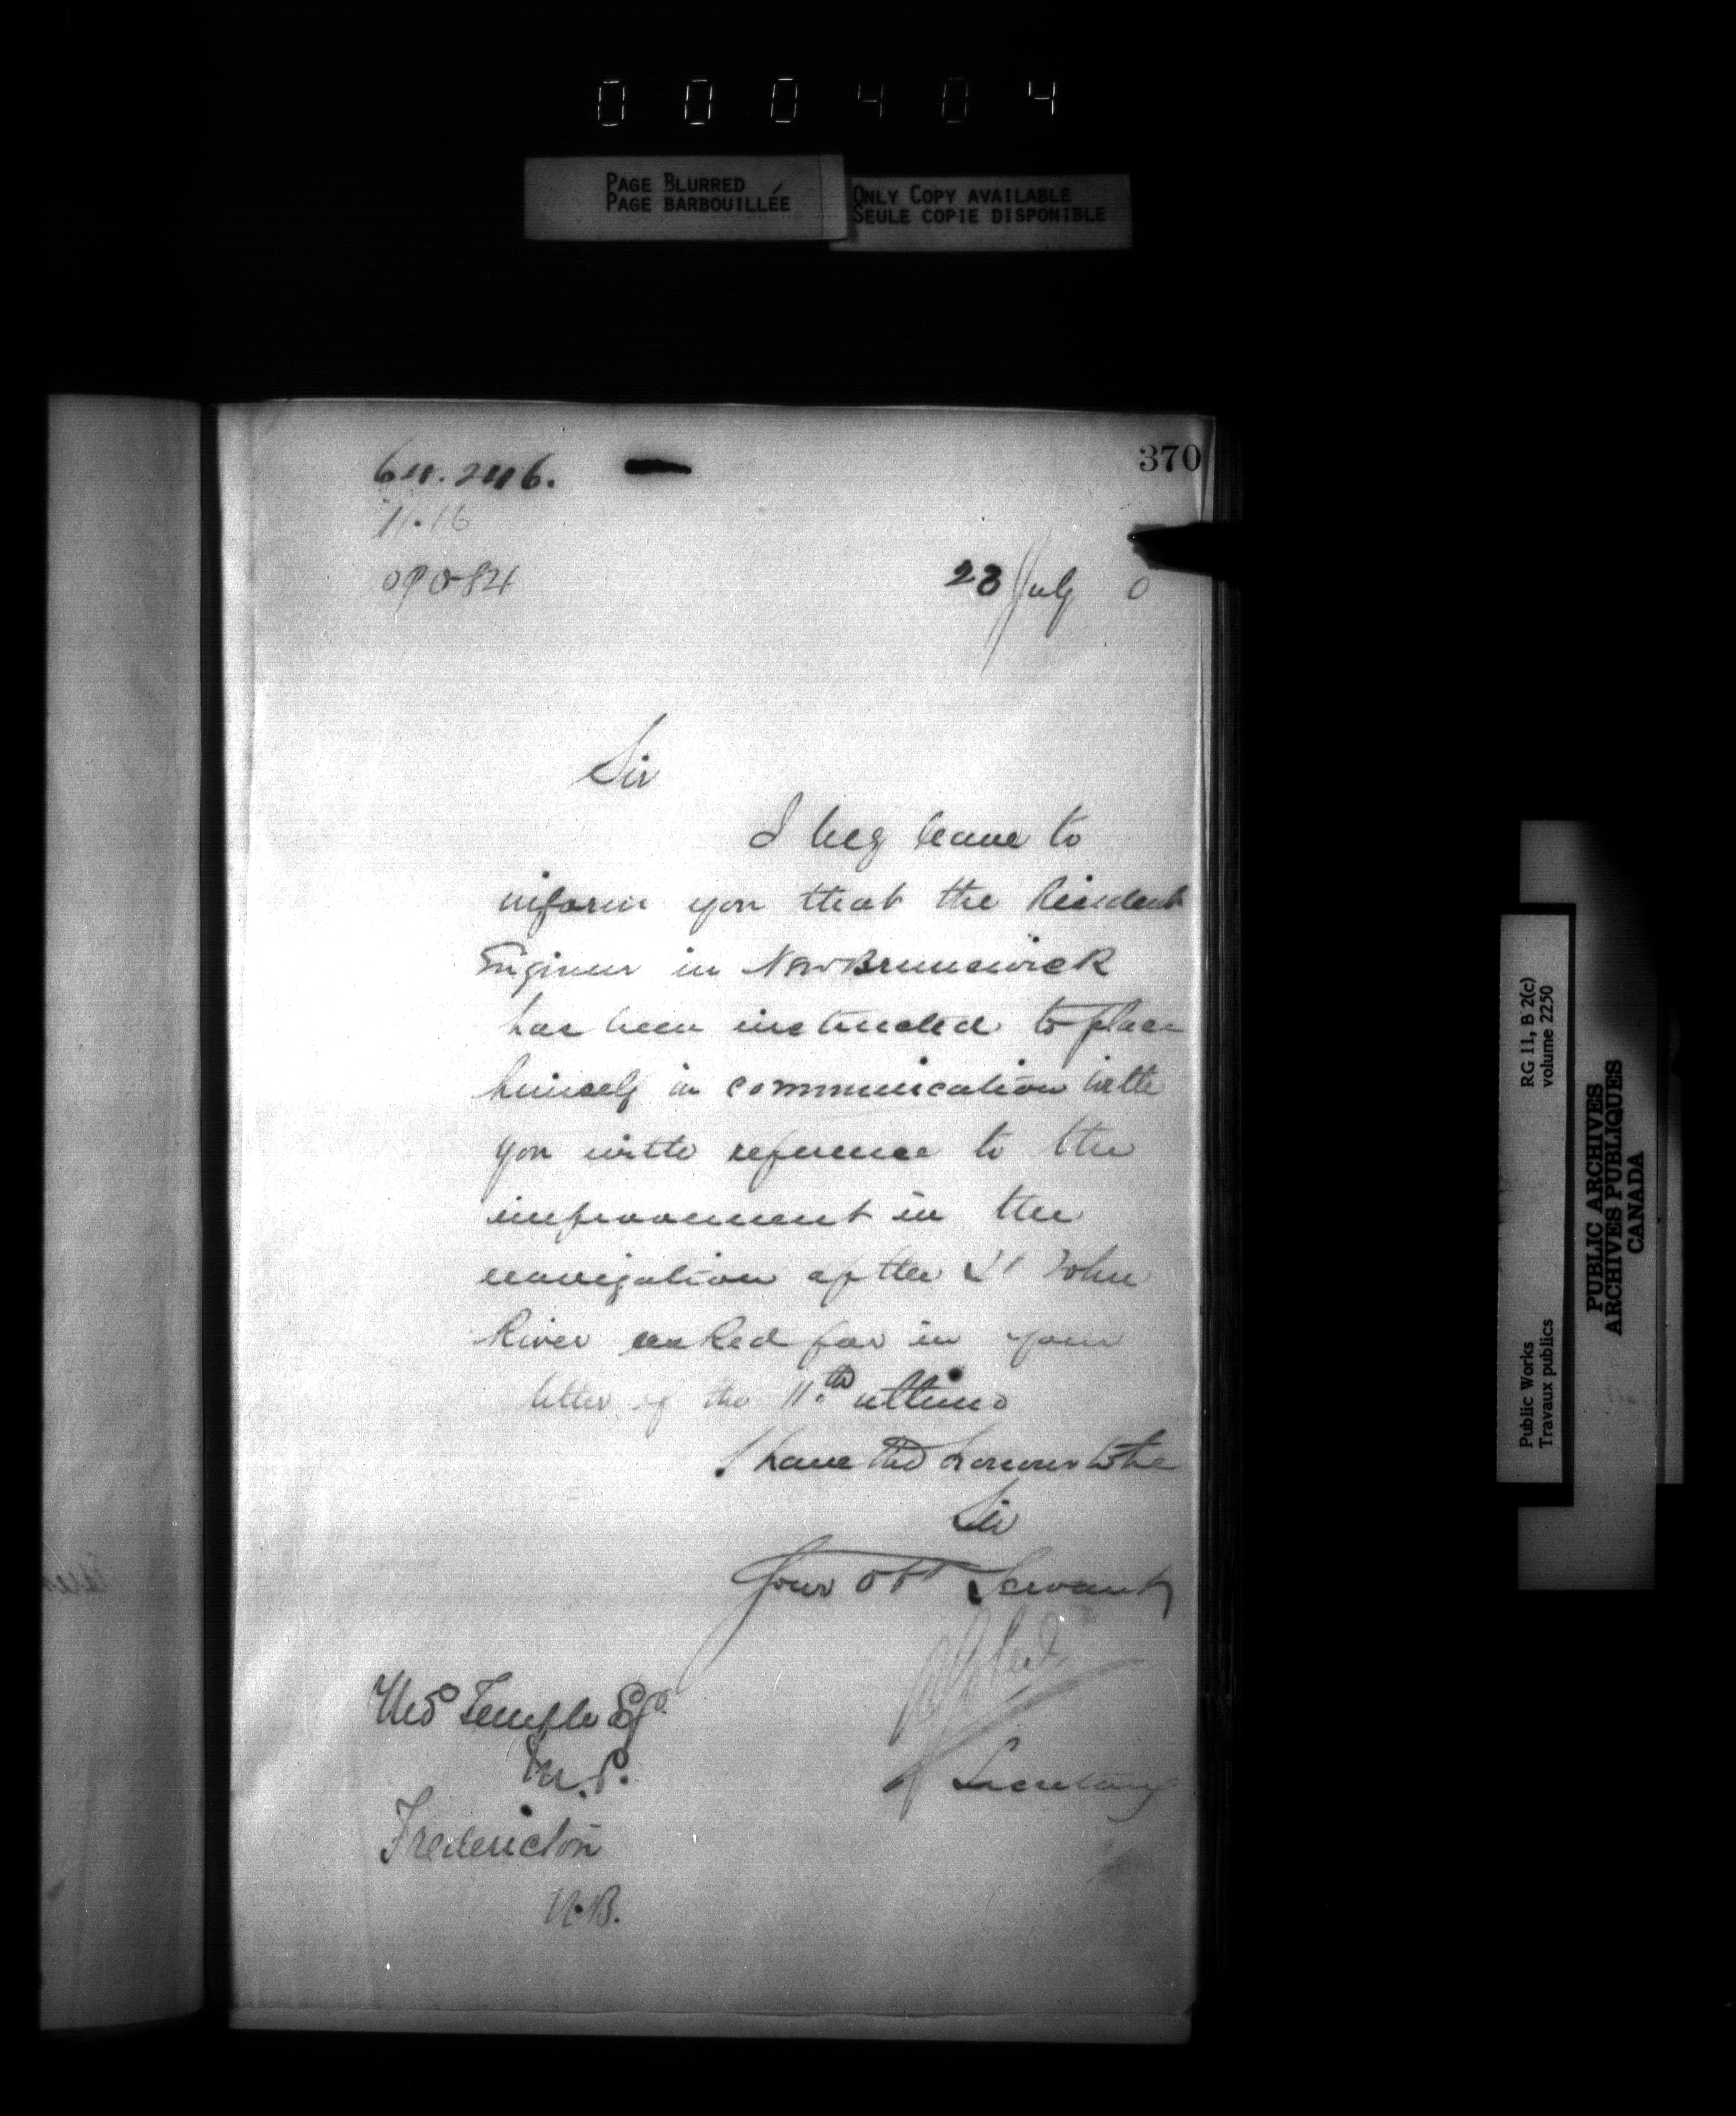 000404
PAGE BLURRED
PAGE BARBOUILLÉE
ONLY COPY AVAILABLE
SEULE COPIE DISPONIBLE
370
11.16
23 July 0
Sir
I beg leave to
inform you that the Resident
Engineer in New Brunswick
has been instructed to place
himself in communication with
you with reference to the
improvement in the
navigation of the St John
River asked for in your
letter of the 11.th ultimo
I have the honour to be
Sir
Your Obt Servant
Secretary
Thos Temple Esq.
M.P.
Fredericton
N.B.
RG 11, B 2(c)
volume 2250
Public Works
Travaux publics
PUBLIC ARCHIVES
ARCHIVES PUBLIQUES
CANADA